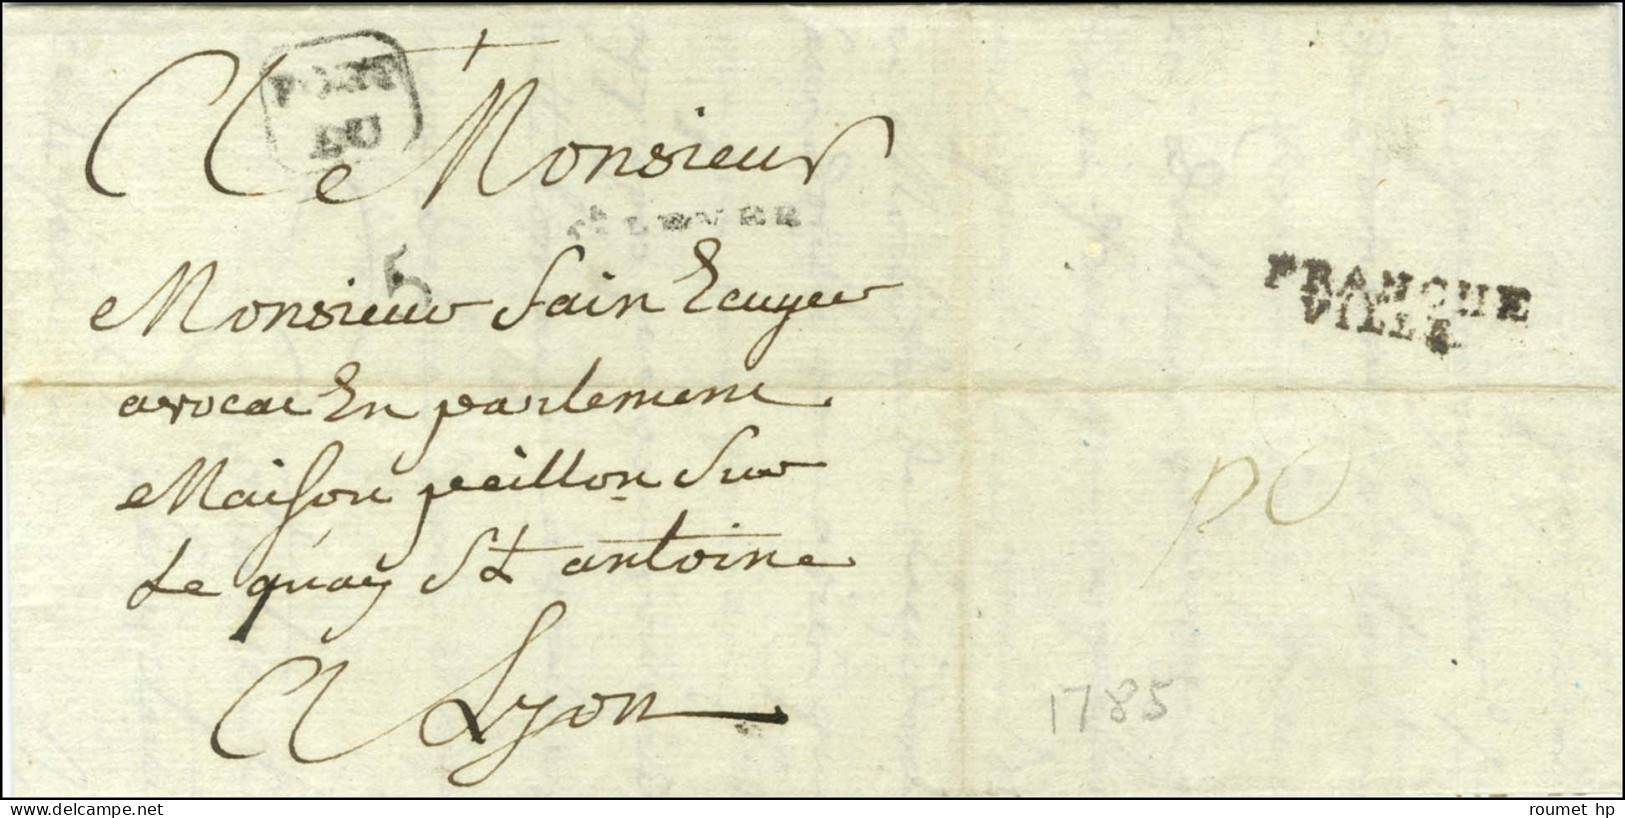 PORT
DU
A Monsieur
5
Rle LEVEE
Monsieur Sain Ecuyer
avocat En parlement
Maison peillon Sur
Le quay St antoine
A Lyon
FRANCHE
VILLE
1785
www.delcampe.net
roumet hp